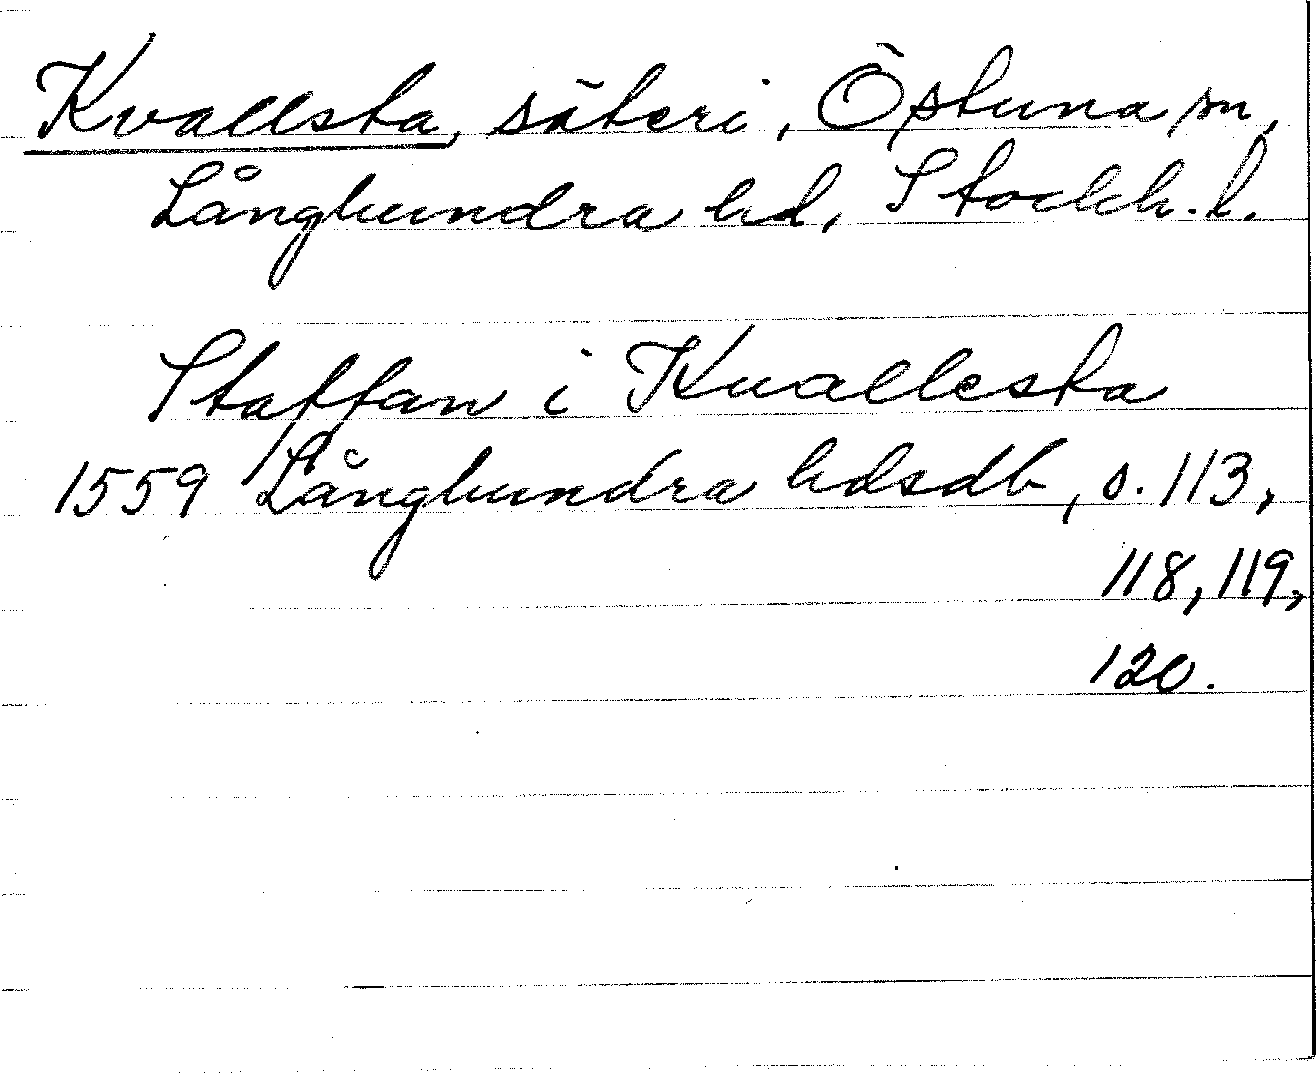 Kvallsta, säteri, Östuna sn,
Långhundra hd, Stockh. l.
Staffan i Kuallesta
1559 Långhundra hdsdb, s. 113,
118, 119,
120.